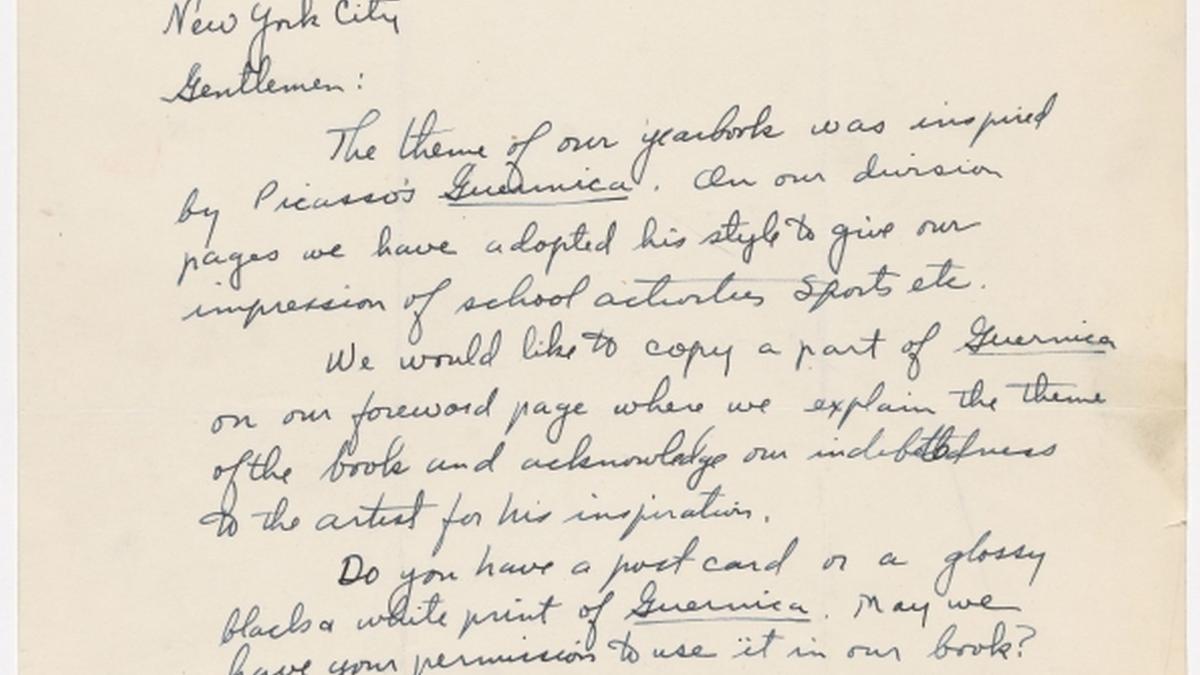 New York City
Gentlemen:
The theme of our yearbook was inspired
by Picasso's Guernica. On our division
pages we have adopted his style to give our
impression of school activities Sports etc.
We would like to copy a part of Guernica
on our foreword page where we explain the theme
of the book and acknowledge our indebtedness
to the artist for his inspiration.
Do you have a post card or a glossy
black & white print of Guernica. May we
have your permission to use it in our book?